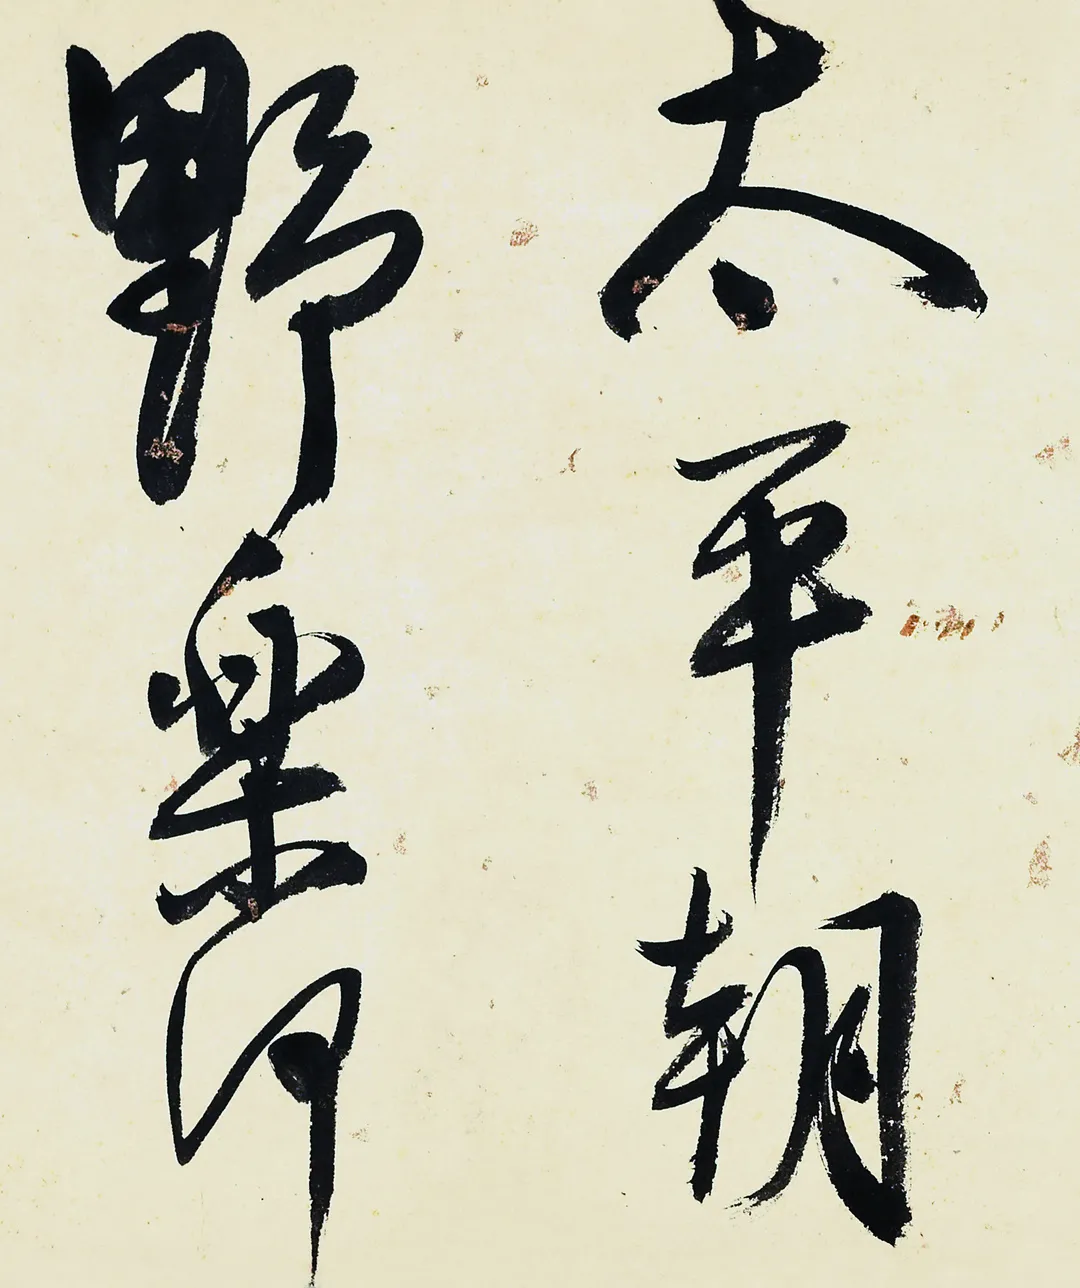 太平朝
野樂何